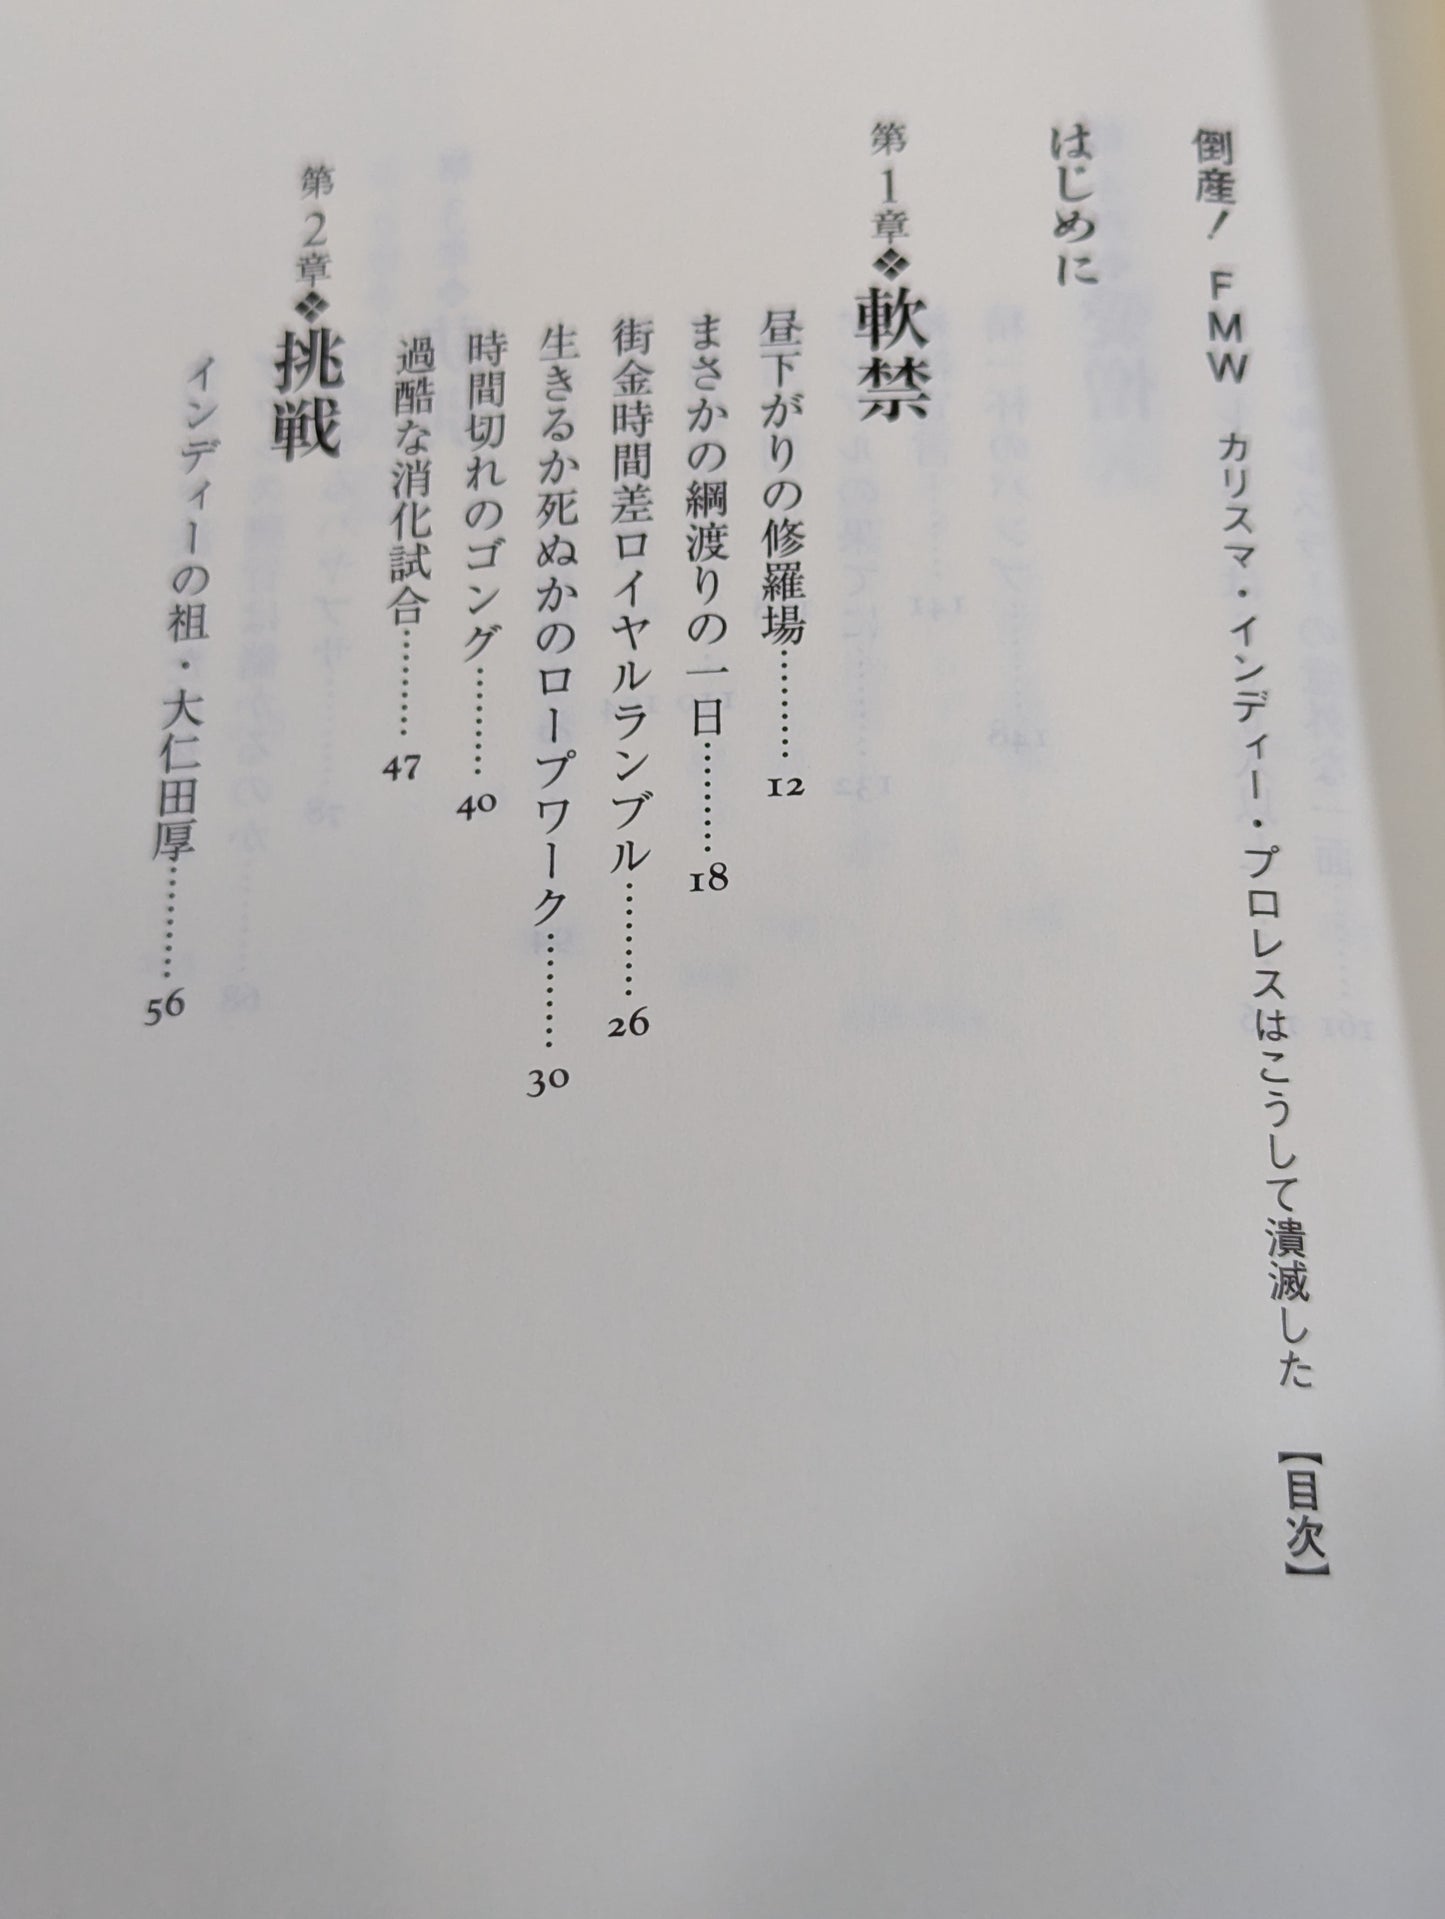 倒産！ FMW カリスマ・インディー・プロレスはこうして潰滅した 【目次】
はじめに
第1章❖軟禁
昼下がりの修羅場………12
まさかの綱渡りの一日………18
街金時間差ロイヤルランブル………26
生きるか死ぬかのロープワーク………30
時間切れのゴング………40
過酷な消化試合………47
第2章❖挑戦
インディーの祖・大仁田厚………56